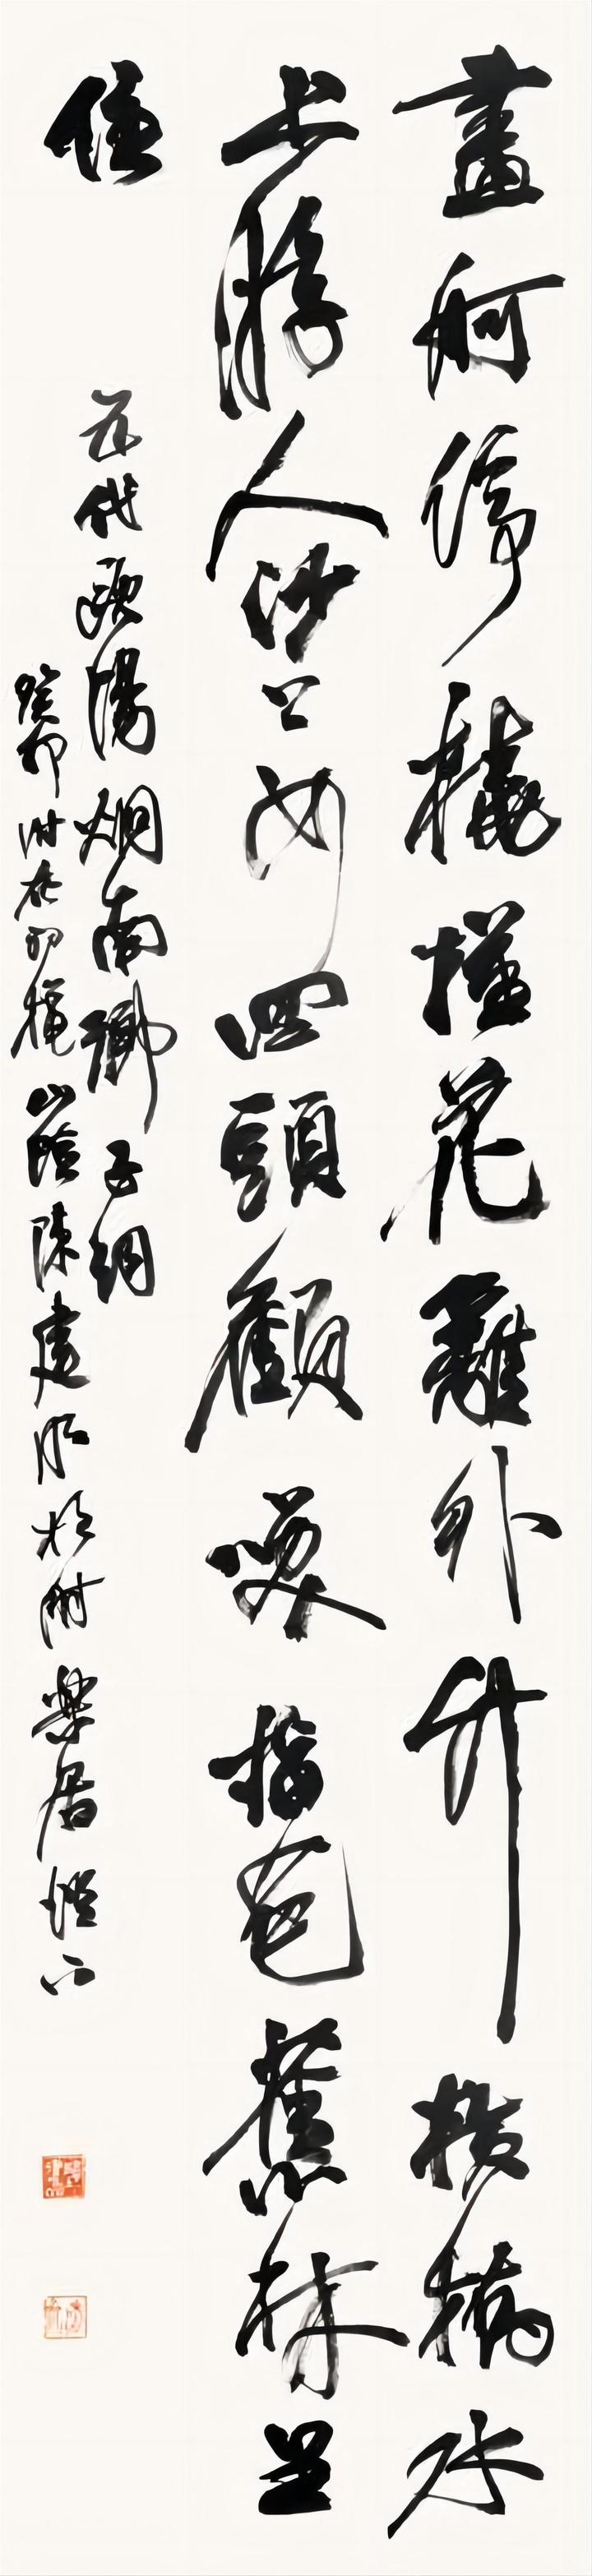 畫舸停橈槿花籬外竹橫橋水
上游人沙上女回頭顧笑指芭蕉林里
住
五代歐陽炯南鄉子詞
癸卯時在山陰陳建於樂居燈下